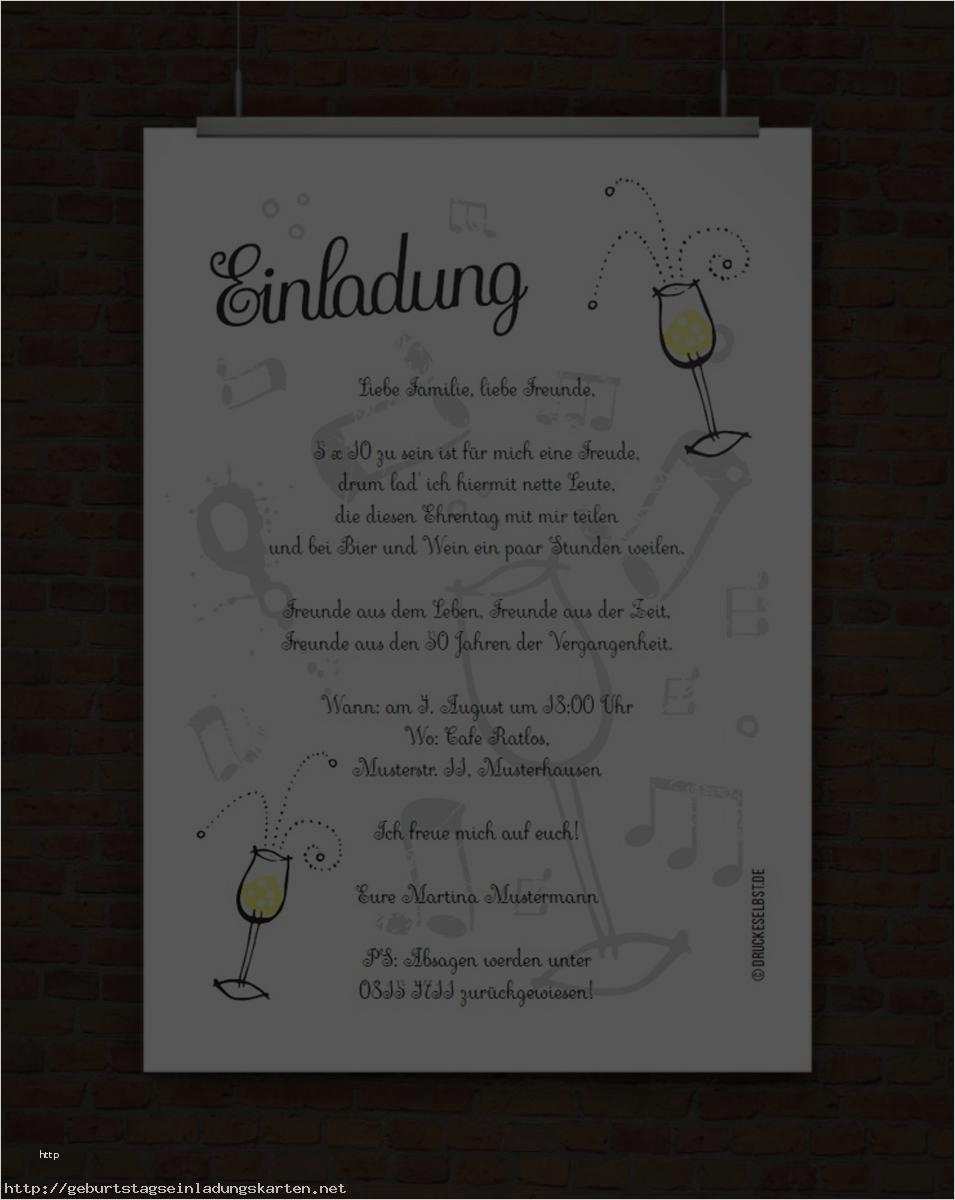 Einladung
Liebe Familie, liebe Freunde,
5 x 10 zu sein ist für mich eine Freude,
drum lad' ich hiermit nette Leute,
die diesen Ehrentag mit mir teilen
und bei Bier und Wein ein paar Stunden weilen.
Freunde aus dem Leben, Freunde aus der Zeit,
Freunde aus den 50 Jahren der Vergangenheit.
Wann: am 7. August um 18:00 Uhr
Wo: Cafe Ratlos,
Musterstr. 11, Musterhausen
Ich freue mich auf euch!
Eure Martina Mustermann
PS: Absagen werden unter
0815 4711 zurückgewiesen!
© DRUCKESELBST.DE
http
http://geburtstagseinladungskarten.net